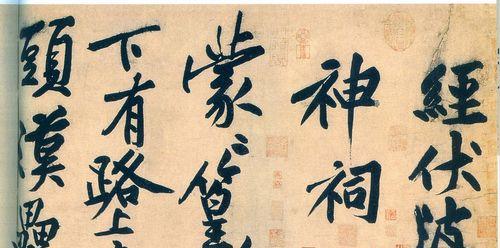 經伏波
神祠
蒙〻篁
下有路上
頭漢壘